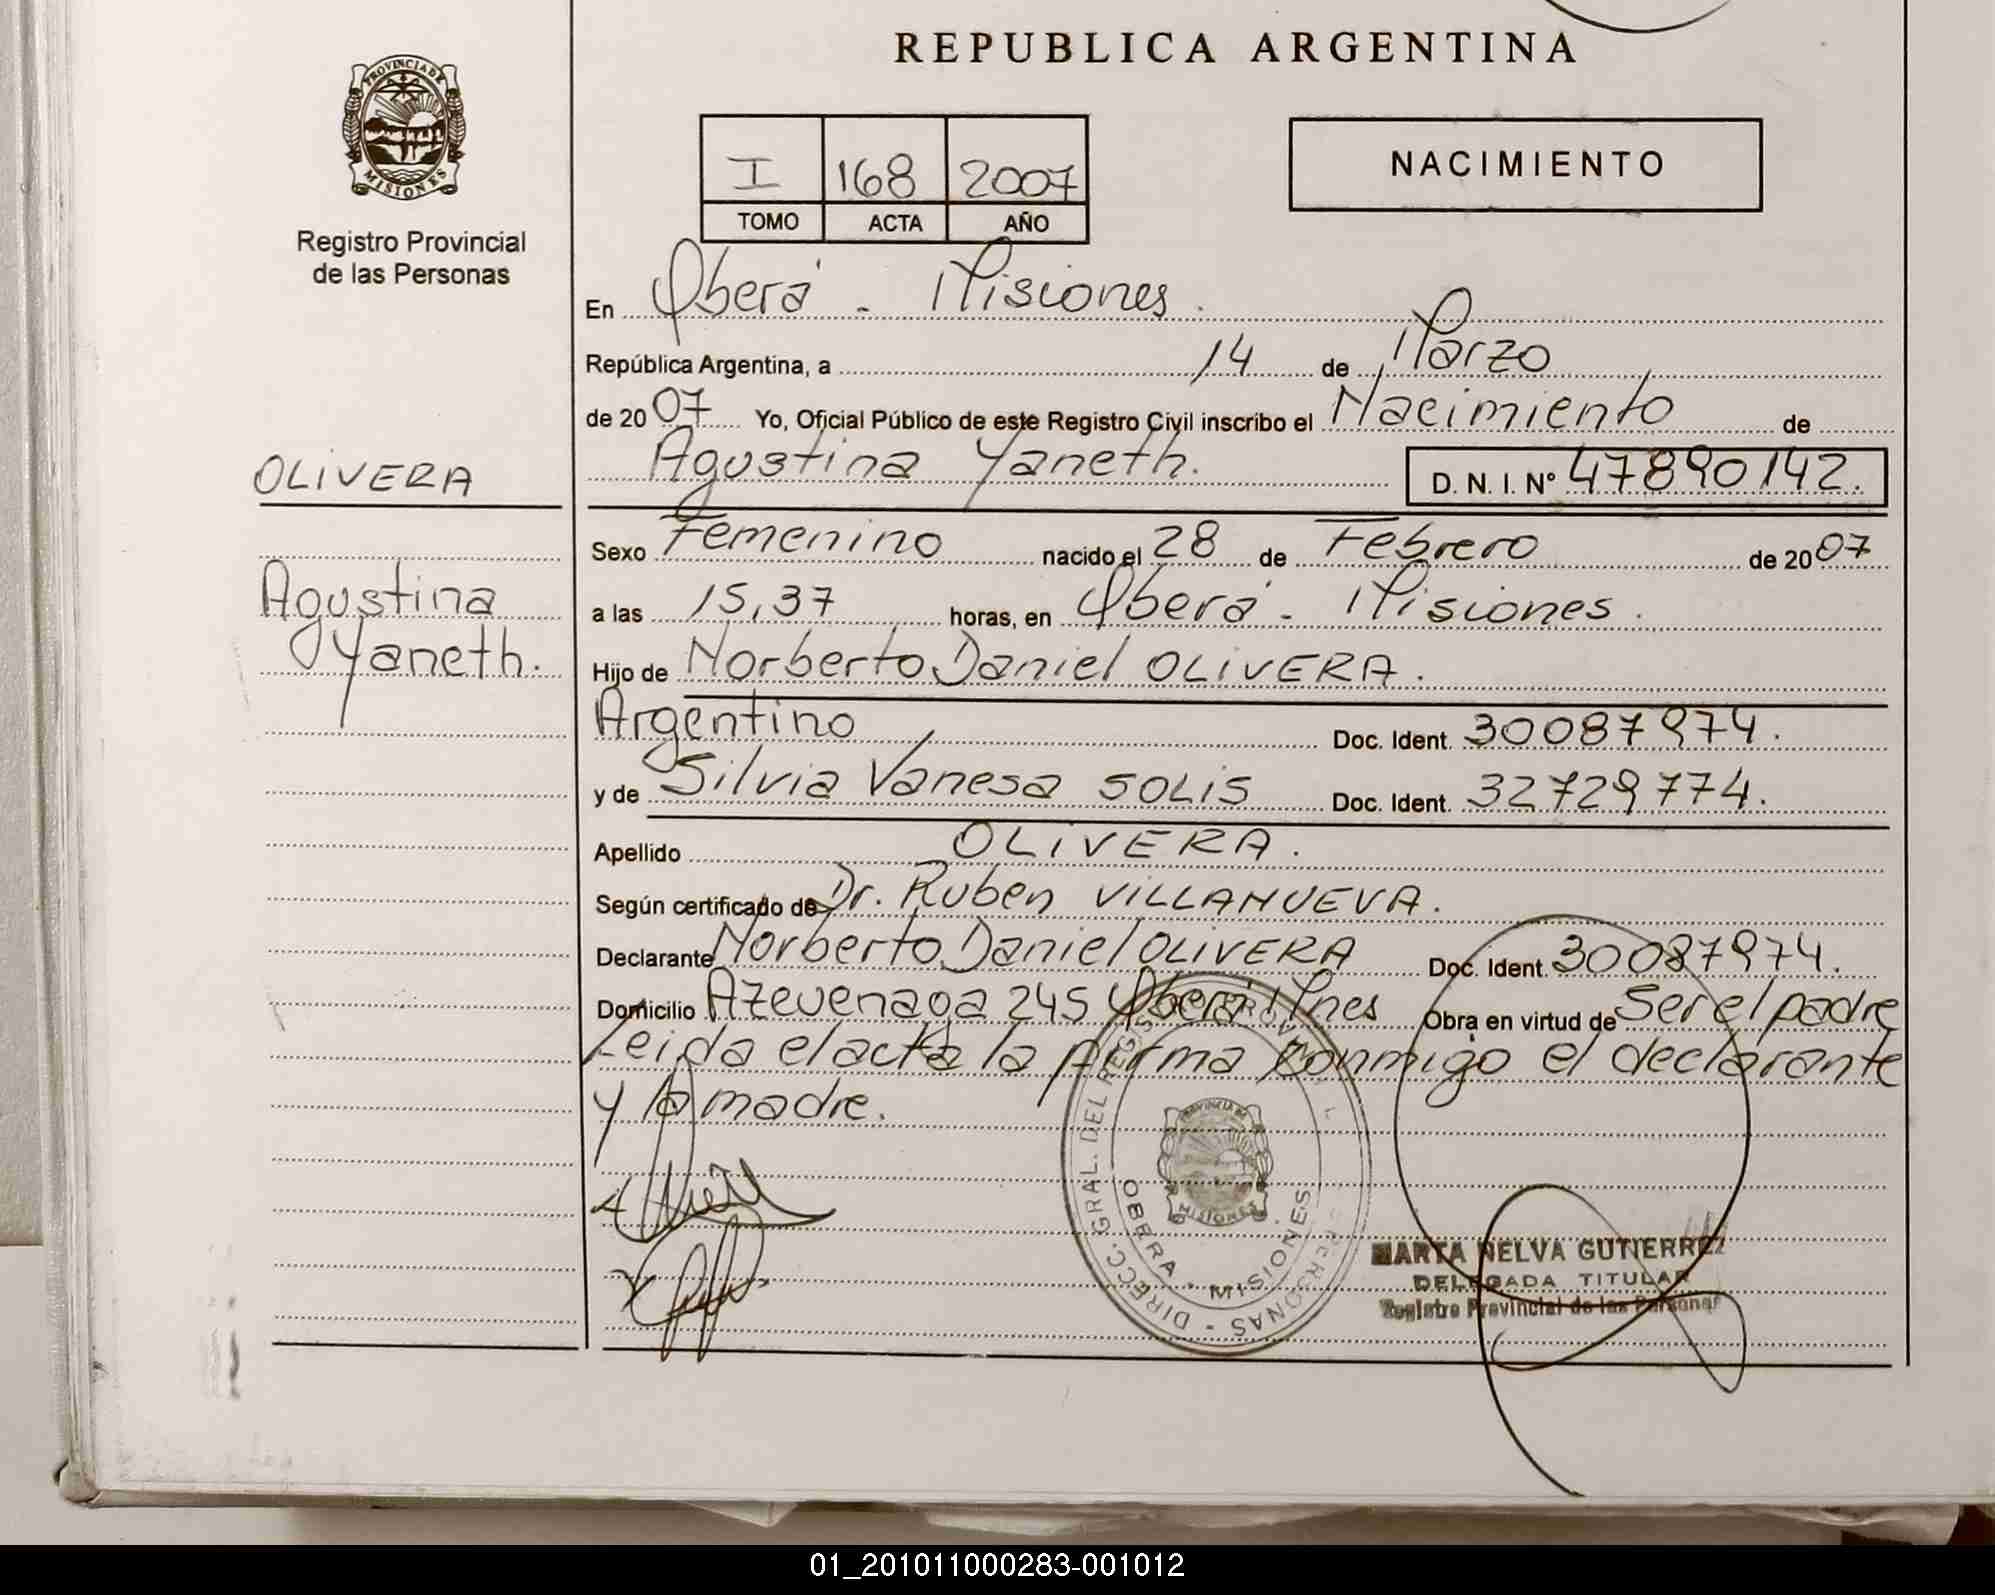 REPUBLICA ARGENTINA
PROVINCIA DE
MISIONES
Registro Provincial
de las Personas
I 168 2007
TOMO ACTA AÑO
NACIMIENTO
En Oberá - Misiones.
República Argentina, a 14 de Marzo
de 2007 Yo, Oficial Público de este Registro Civil inscribo el Nacimiento de
OLIVERA
Agustina Yaneth. D. N. I. Nº 47890142.
Sexo Femenino nacido el 28 de Febrero de 2007
Agustina
Yaneth.
a las 15,37 horas, en Oberá - Misiones.
Hijo de Norberto Daniel OLIVERA.
Argentino Doc. Ident. 30087974.
y de Silvia Vanesa SOLIS Doc. Ident. 32729774.
Apellido OLIVERA.
Según certificado de Dr. Ruben VILLANUEVA.
Declarante Norberto Daniel OLIVERA Doc. Ident. 30087974.
Domicilio 245 Oberá Mnes Obra en virtud de Ser el padre
Leida el acta la firma conmigo el declarante
y la madre.
DIRECC. GRAL. DEL PERSONAS
OBERA - MISIONES
PROVINCIA DE
MISIONES
MARTA NELVA GUTIERREZ
DELEGADA TITULAR
Registro Provincial de las Personas
01_201011000283-001012